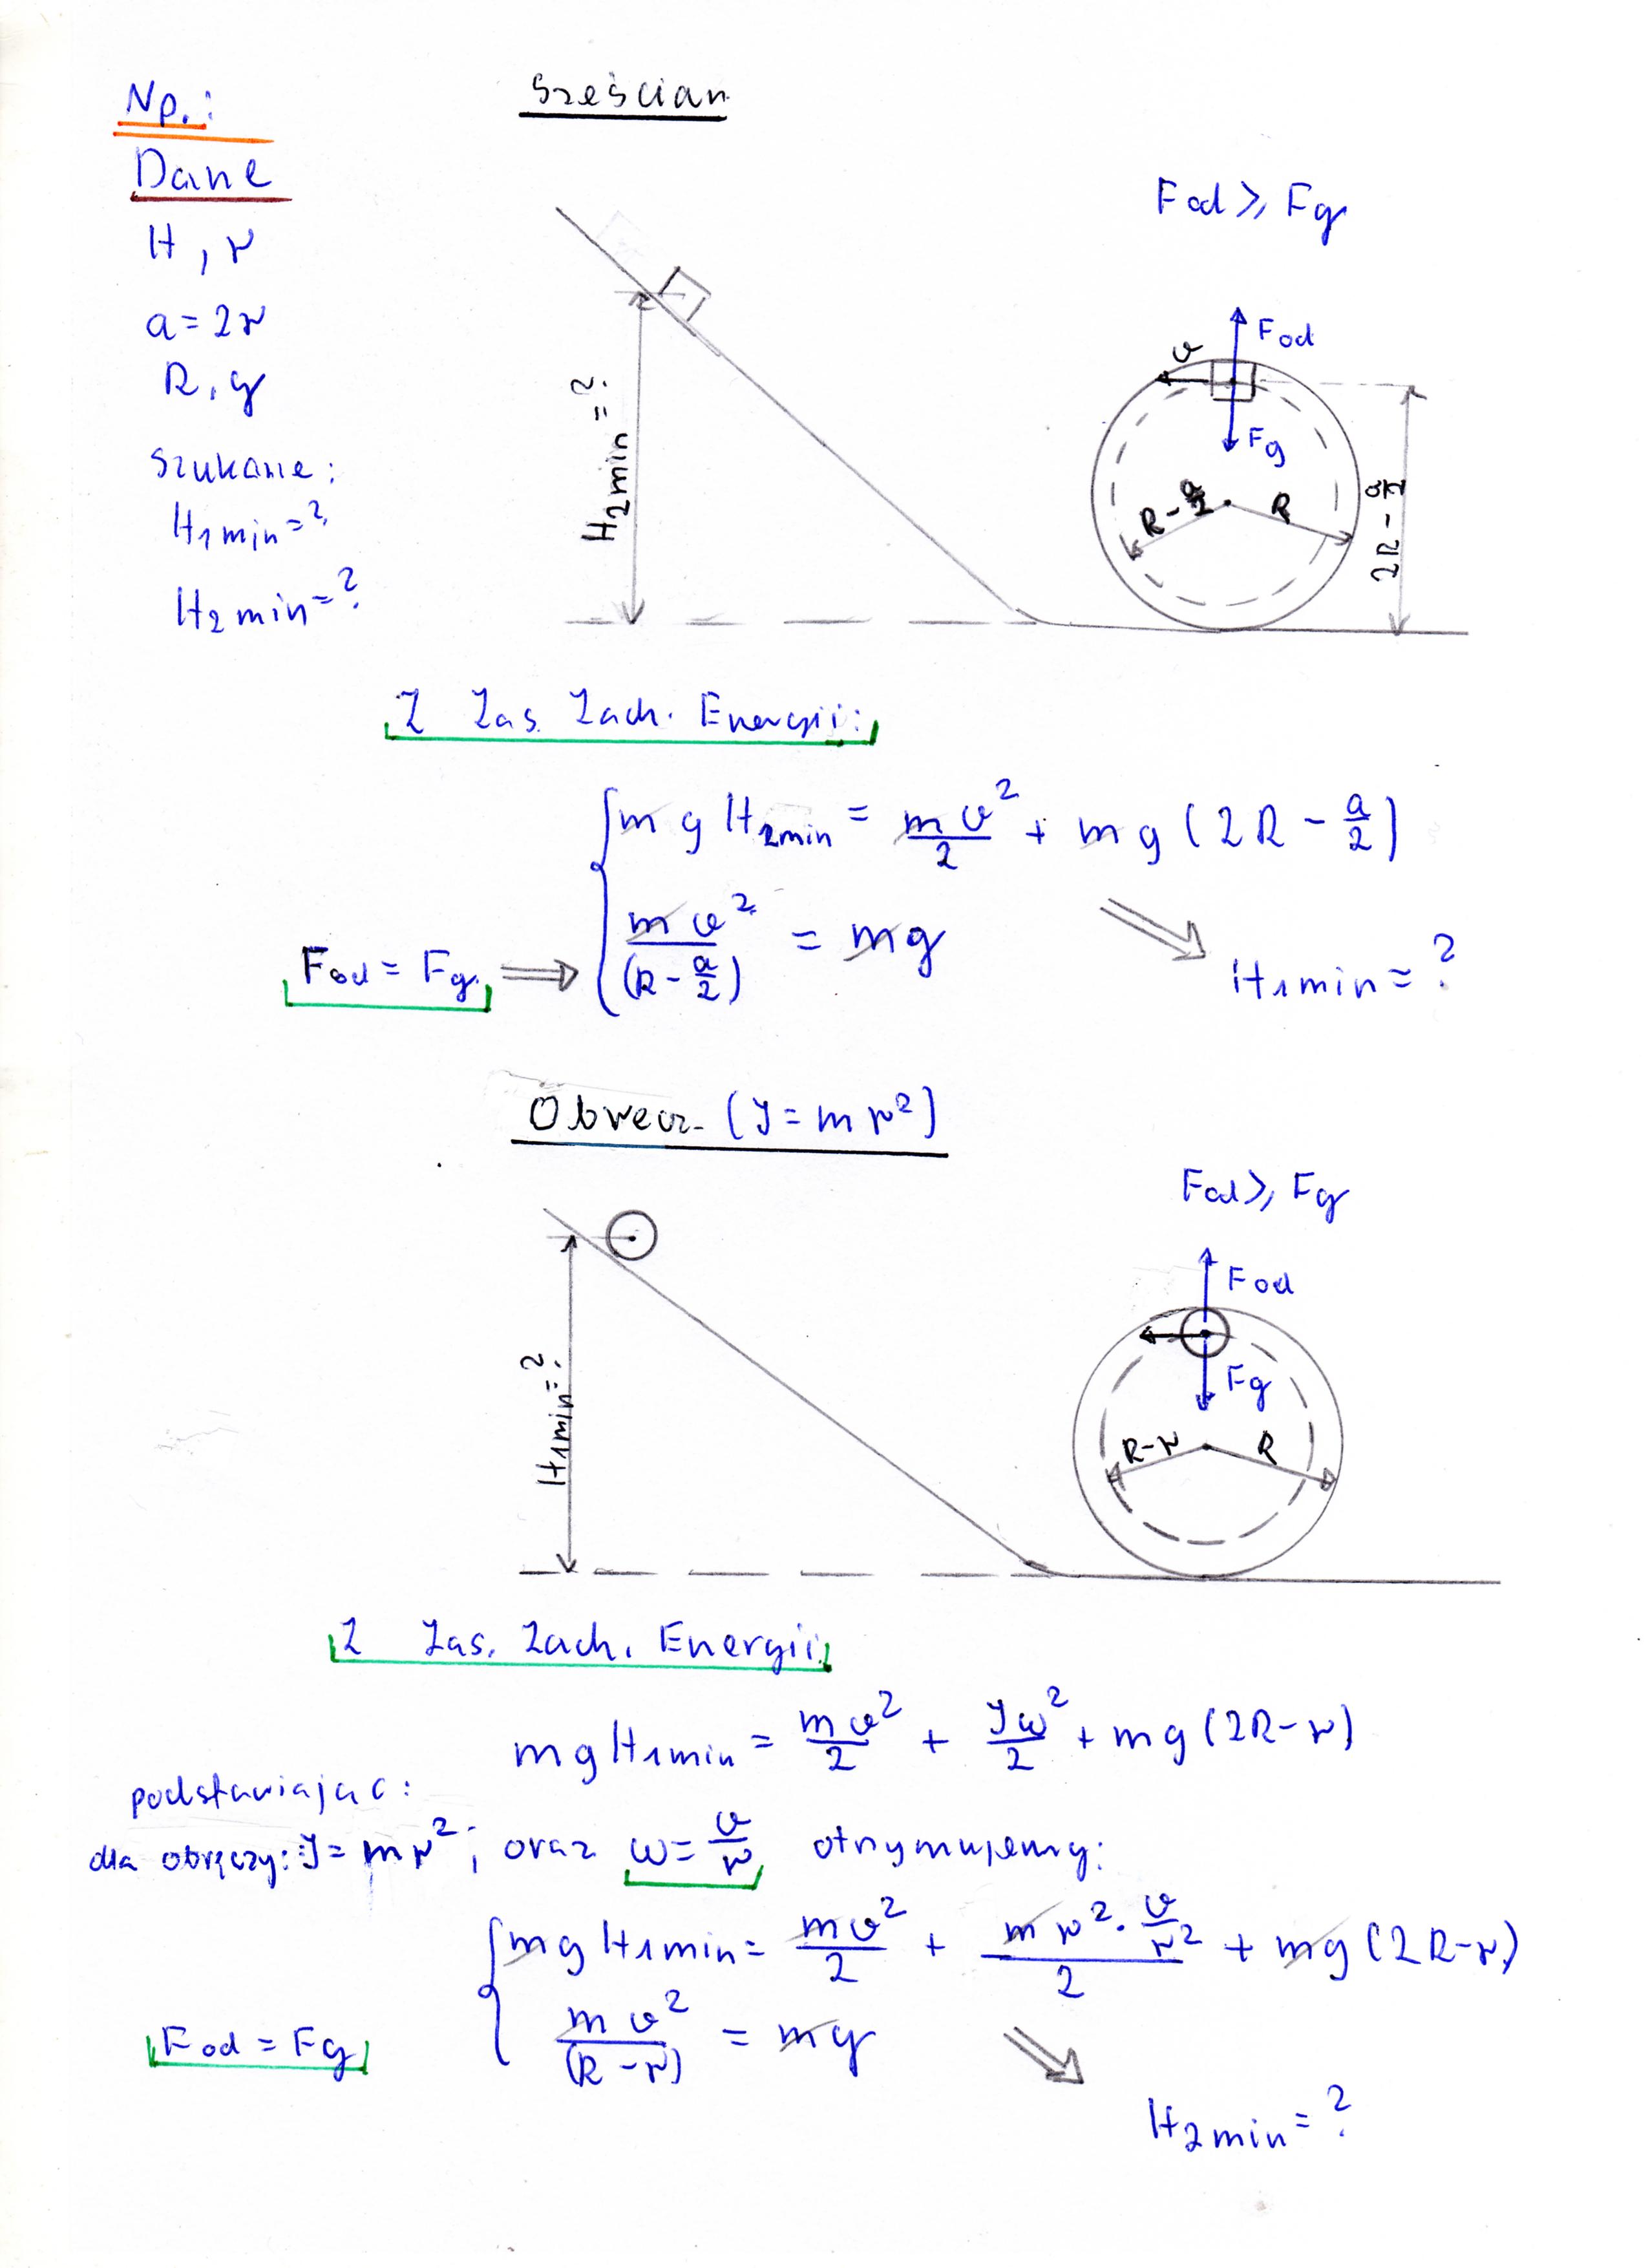 Np.:
Sześcian
Dane
H, r
a = 2r
R, g
Szukane:
H1min = ?
H2min = ?
Fod ≥ Fg
H2min = ?
v
Fod
Fg
R - a/2
R
2R - a/2
Z Zas. Zach. Energii:
m g H2min = mv²/2 + mg (2R - a/2)
Fod = Fg ⇒ mv²/(R - a/2) = mg
⇒ H1min = ?
Obręcz (J = mr²)
Fod ≥ Fg
H1min = ?
Fod
Fg
R-r
R
Z Zas. Zach. Energii
mg H1min = mv²/2 + Jω²/2 + mg (2R-r)
podstawiając:
dla obręczy: J = mr²; oraz ω = v/r otrzymujemy:
mg H1min = mv²/2 + (mr² · v/r²)/2 + mg (2R-r)
Fod = Fg
mv²/(R-r) = mg
⇒ H2min = ?